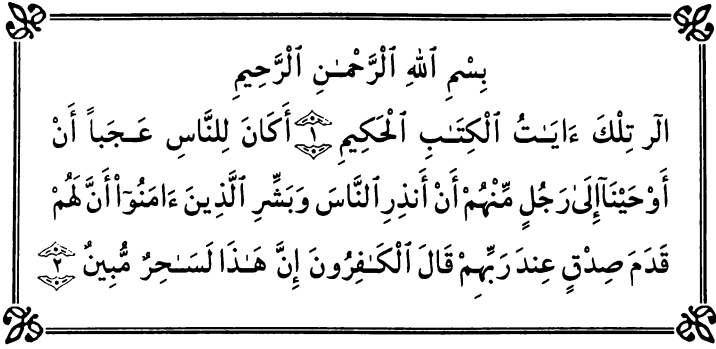 بِسْمِ ٱللهِ ٱلْرَّحْمَـٰنِ ٱلْرَّحِيمِ
الٓر تِلْكَ ءَايَـٰتُ ٱلْكِتَـٰبِ ٱلْحَكِيمِ ١ أَكَانَ لِلنَّاسِ عَجَباً أَنْ
أَوْحَيْنَآ إِلَىٰ رَجُلٍ مِّنْهُمْ أَنْ أَنذِرِ ٱلنَّاسَ وَبَشِّرِ ٱلَّذِينَ ءَامَنُوٓا۟ أَنَّ لَهُمْ
قَدَمَ صِدْقٍ عِندَ رَبِّهِمْ قَالَ ٱلْكَـٰفِرُونَ إِنَّ هَـٰذَا لَسَـٰحِرٌ مُّبِينٌ ٢